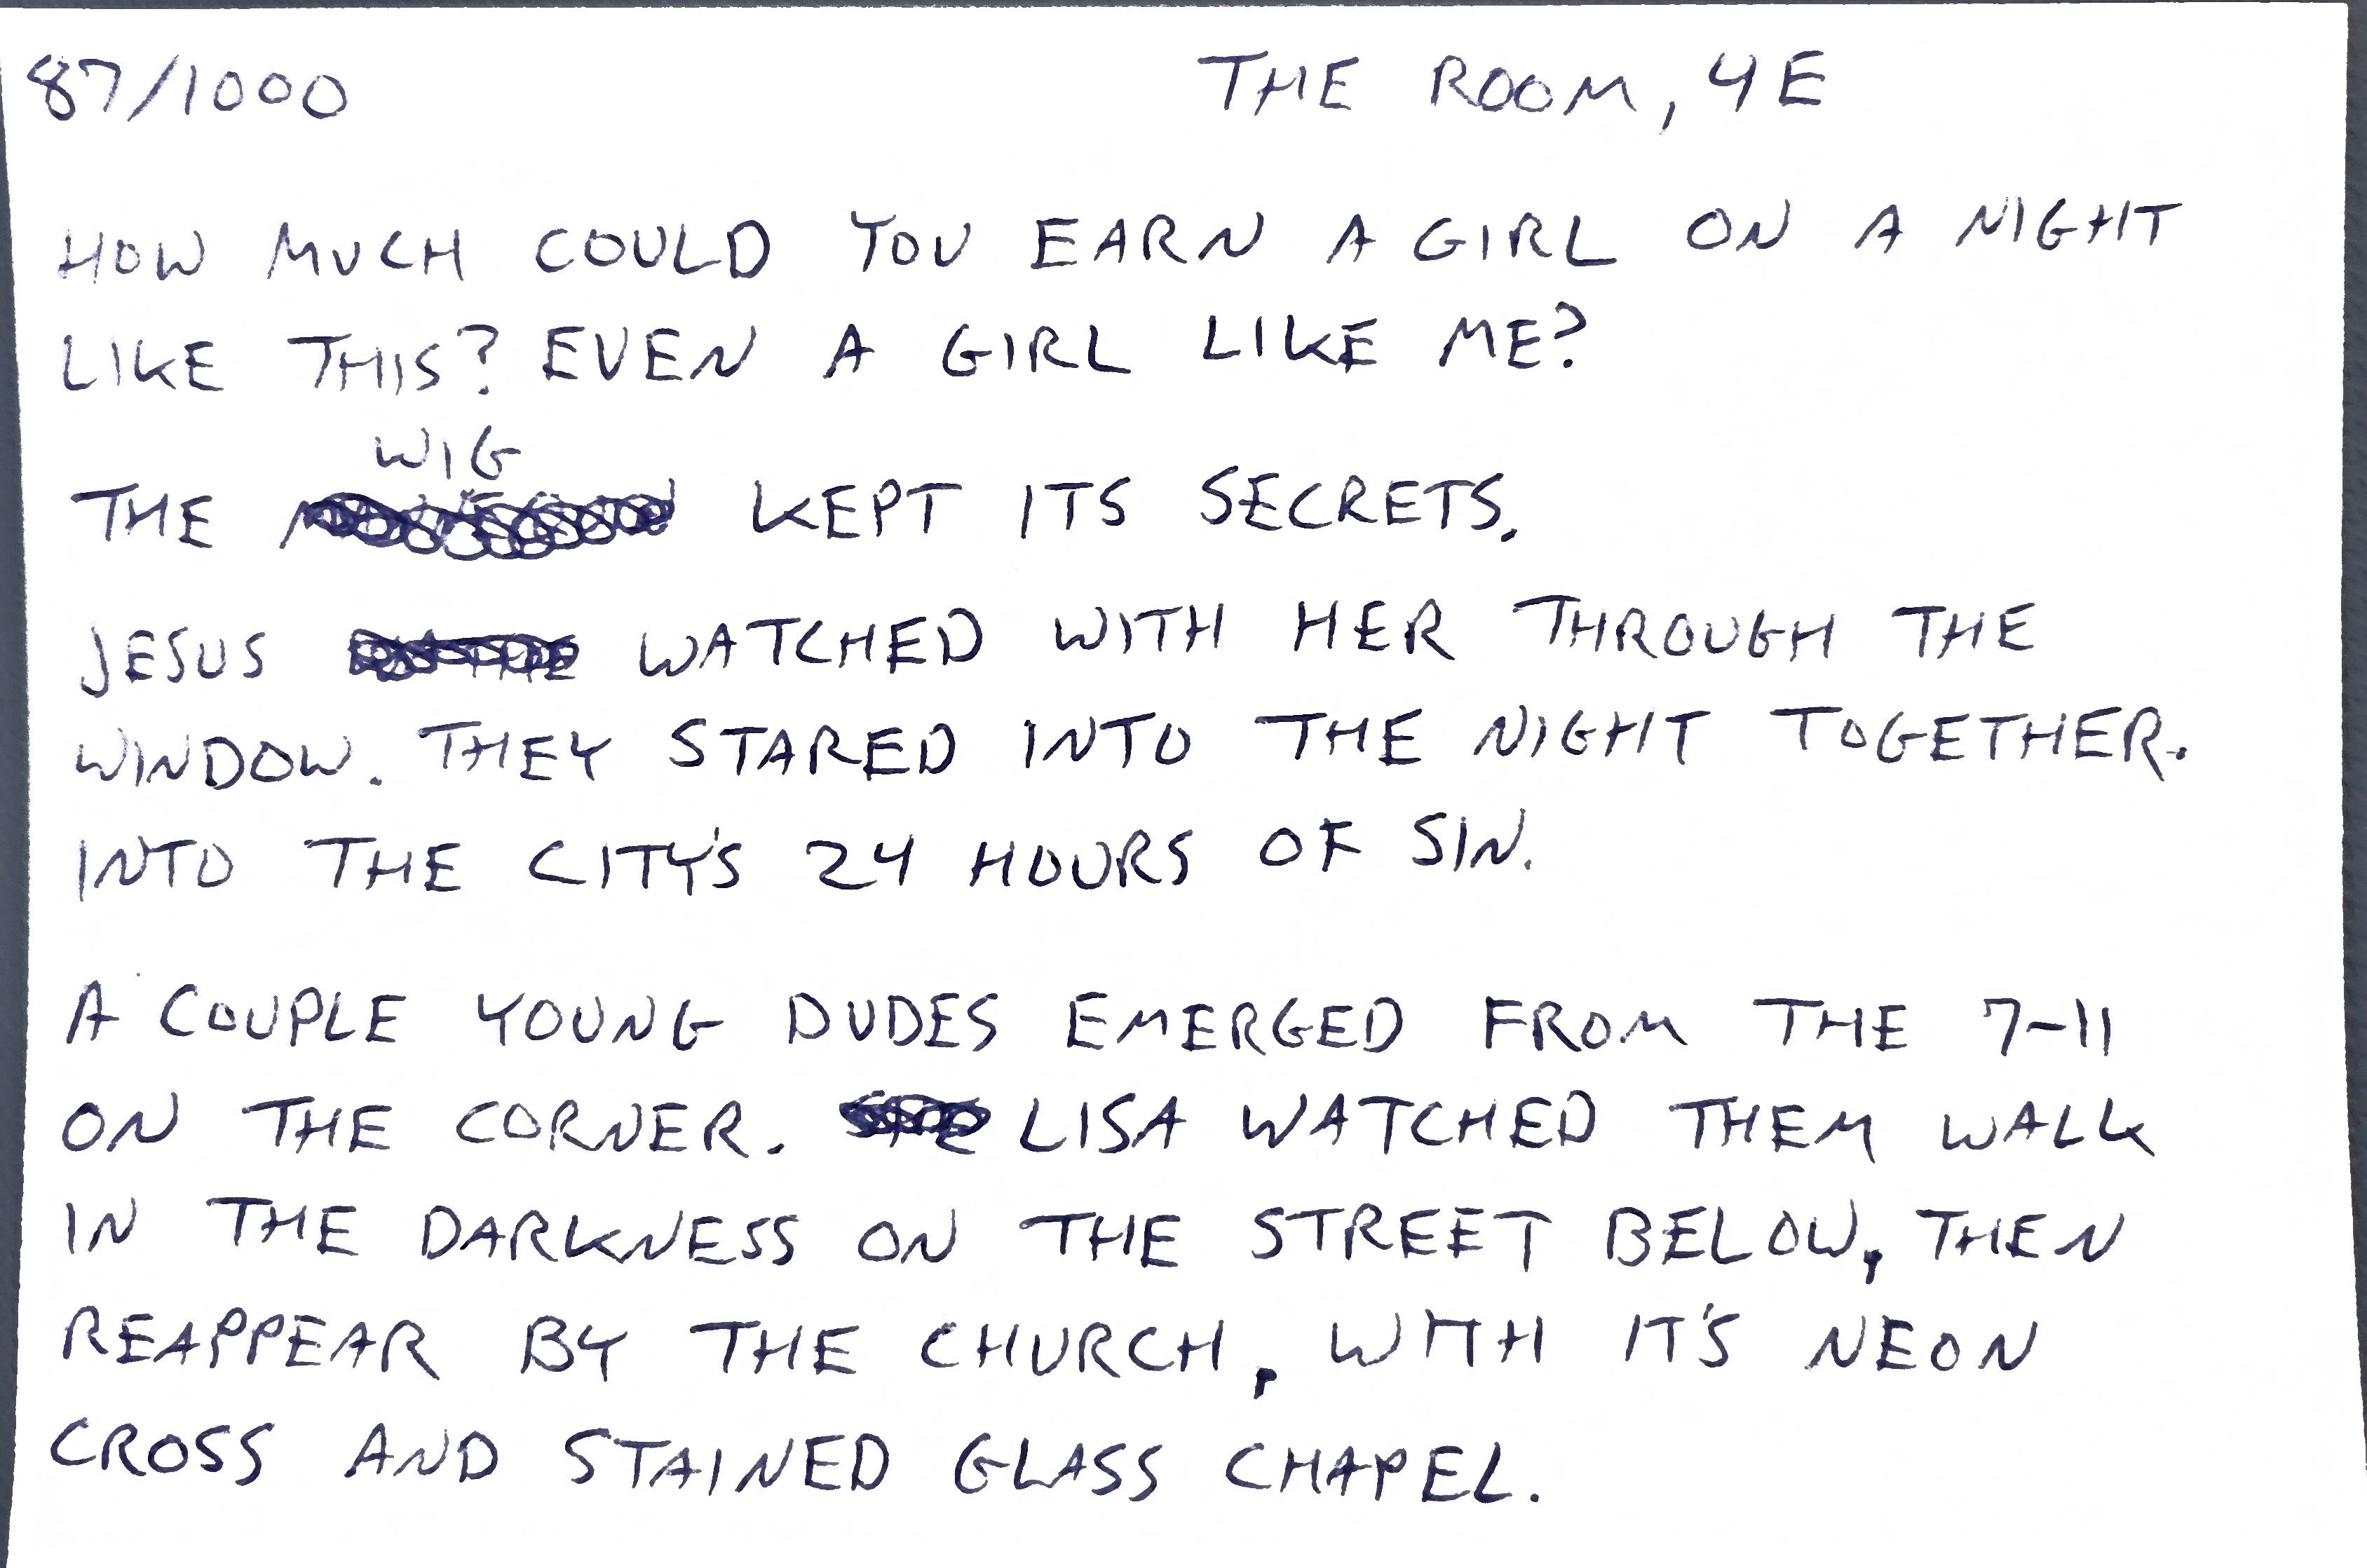 87/1000 THE ROOM, 4E
HOW MUCH COULD YOU EARN A GIRL ON A NIGHT
LIKE THIS? EVEN A GIRL LIKE ME?
WIG
THE KEPT ITS SECRETS.
JESUS WATCHED WITH HER THROUGH THE
WINDOW. THEY STARED INTO THE NIGHT TOGETHER.
INTO THE CITY'S 24 HOURS OF SIN.
A COUPLE YOUNG DUDES EMERGED FROM THE 7-11
ON THE CORNER. LISA WATCHED THEM WALK
IN THE DARKNESS ON THE STREET BELOW, THEN
REAPPEAR BY THE CHURCH, WITH IT'S NEON
CROSS AND STAINED GLASS CHAPEL.